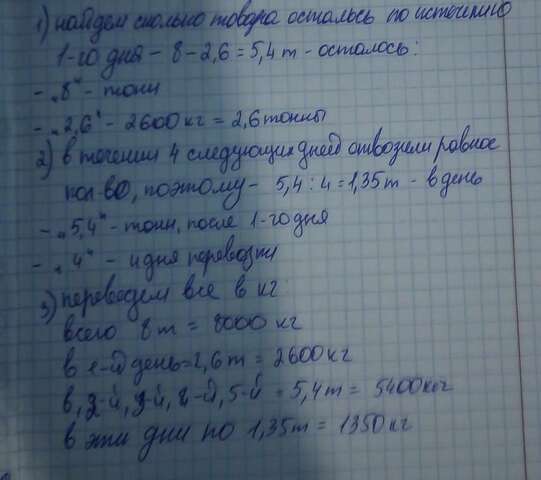 1) найдем сколько товара осталось по истечению
1-го дня - 8 - 2,6 = 5,4 т - осталось:
- "8" - тонн
- "2,6" - 2600 кг = 2,6 тонны
2) в течении 4 следующих дней отвозили равное
кол-во, поэтому - 5,4 : 4 = 1,35 т - в день
- "5,4" - тонн, после 1-го дня
- "4" - дня перевозки
3) переводем все в кг
всего 8 т = 8000 кг
в 1-й день = 2,6 т = 2600 кг
в 2-й, 3-й, 4-й, 5-й = 5,4 т = 5400 кг
в эти дни по 1,35 т = 1350 кг